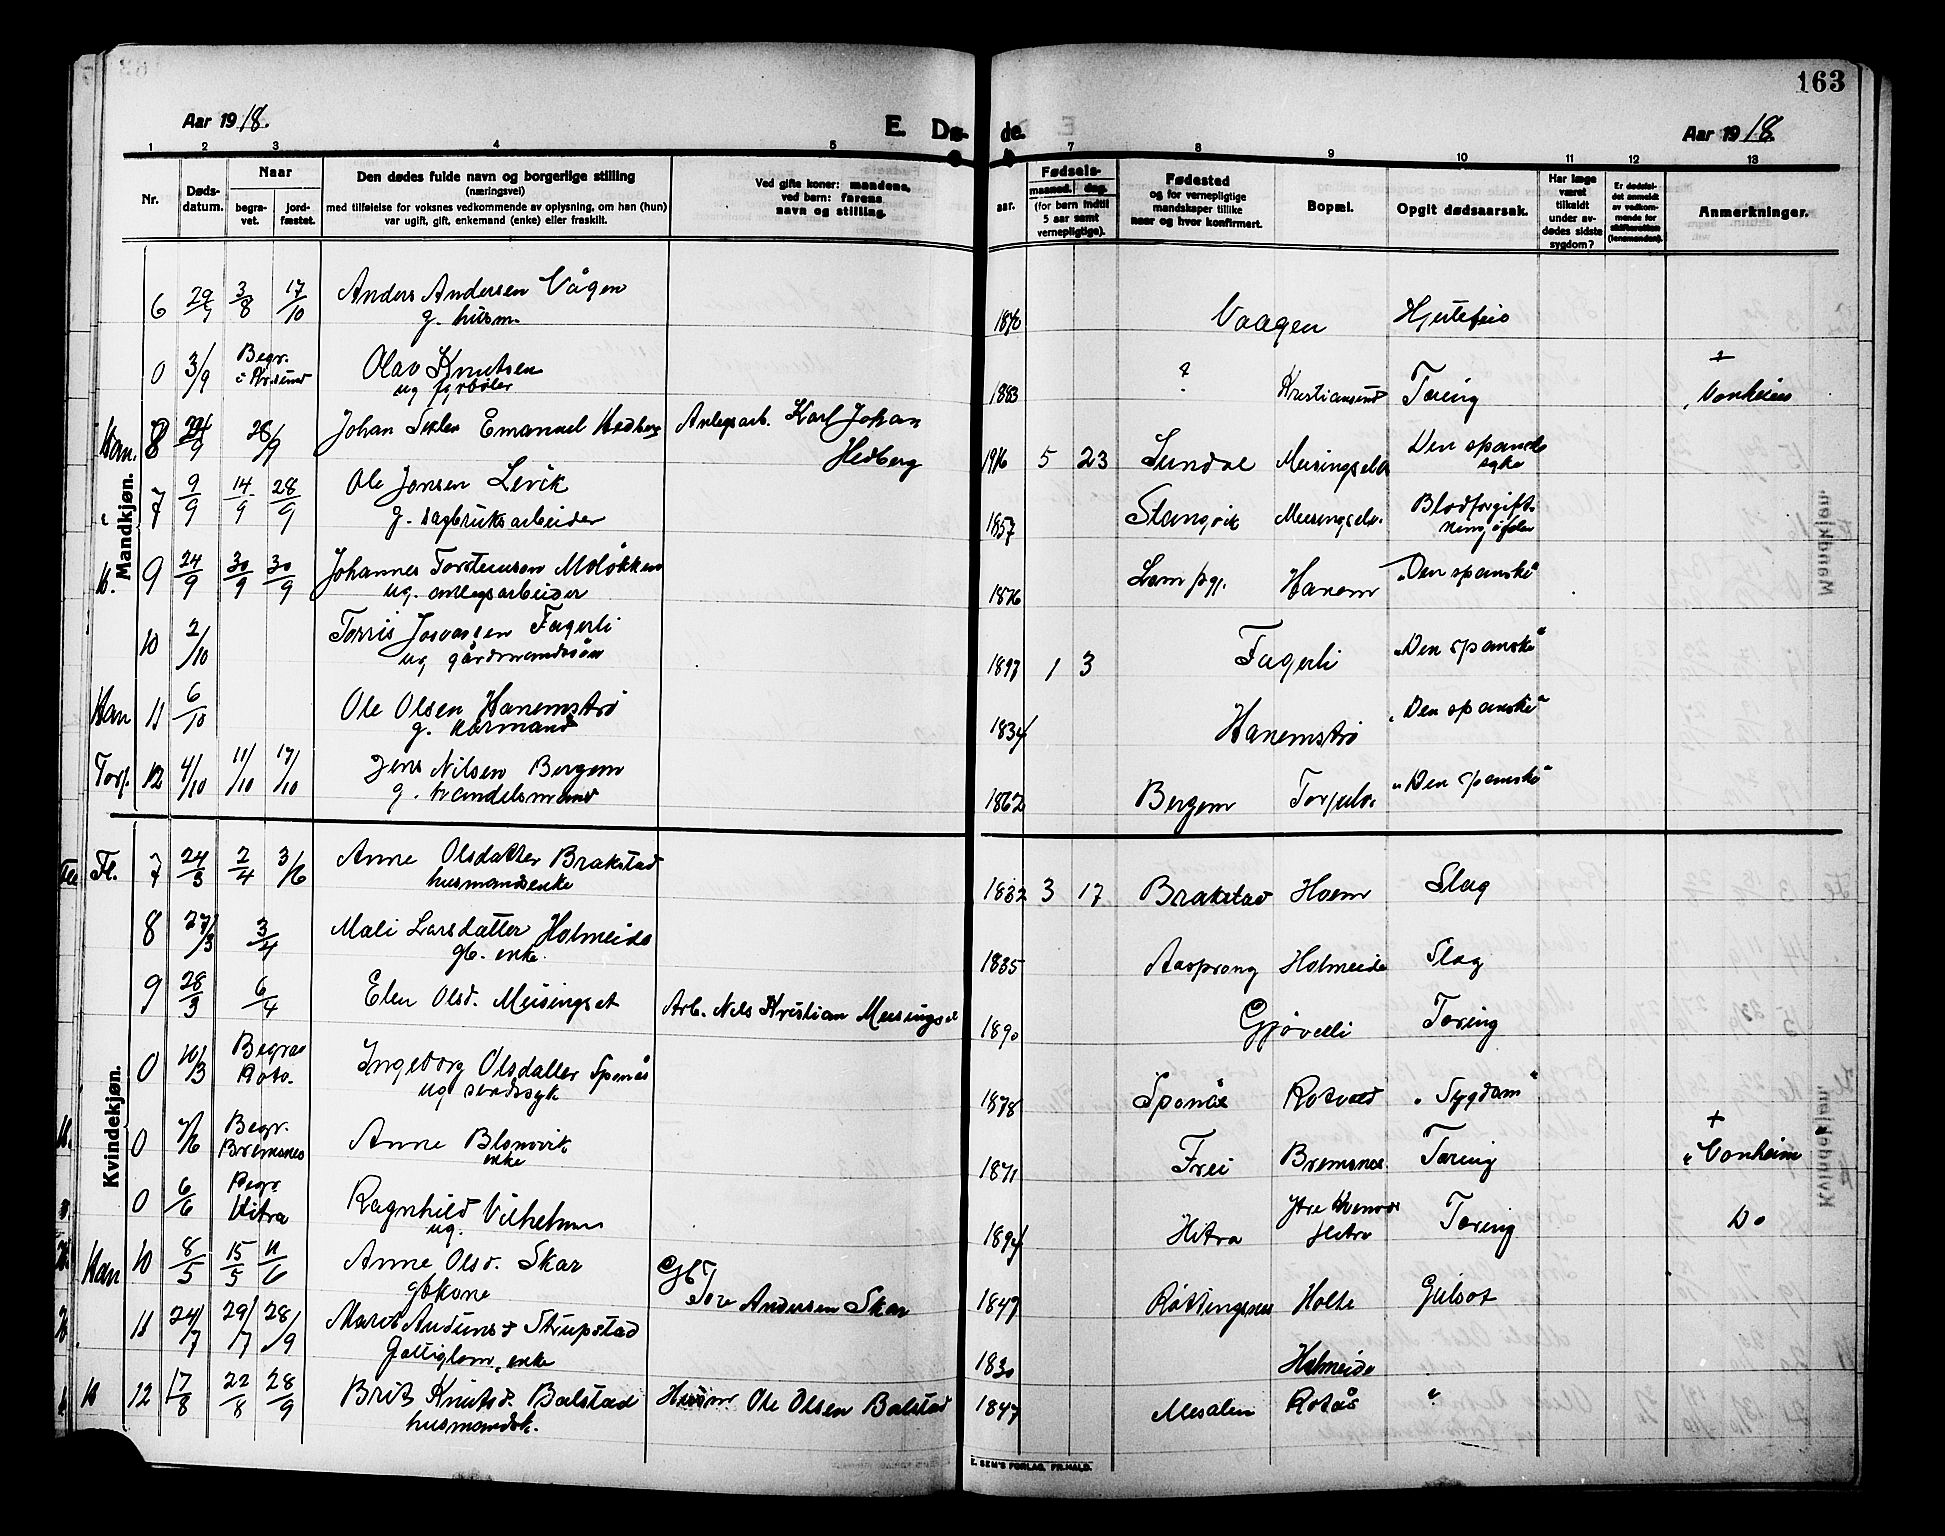 163
Aar 1918.
E. Døde.
Aar 1918.
1 2 3 4 5 7 8 9 10 11 12 13
Nr.
Døds-
datum.
Naar
begra-
vet.
jord-
fæstet.
Den dødes fulde navn og borgerlige stilling
(næringsvei)
med tilføielse for voksnes vedkommende av oplysning, om han (hun)
var ugift, gift, enkemand (enke) eller fraskilt.
Ved gifte koner: mandens,
ved børn: farens
navn og stilling.
Fødsels-
aar. maaned. dag.
(for børn indtil
5 aar samt
vernepligtige).
Fødested
og for vernepligtige
mandskaper tillike
naar og hvor konfirmert.
Bopæl.
Opgit dødsaarsak.
Har læge
været
tilkaldt
under av-
dødes sidste
sygdom?
Er dødsfal-
det anmeldt
av vedkom-
mende for
skifteretten
(lensmanden).
Anmerkninger.
Mandkjøn.
6 29/7 3/8 17/10 Anders Andersen Vågen 1840 Vaagen Hjertefeil
g. husm.
0 3/9 Begr. i Kr.sund Olav Knutsen 1883 ? Kristiansund Tæring +
ug fyrbøter Vonheim
Han. 8 24/9 28/9 Johan Emanuel Hedberg Anlegsarb. Karl Johan
Hedberg 1916 5 23 Sundal Meisingset Den spanske
syke
7 9/9 14/9 28/9 Ole Jonsen Levik 1857 Stangvik Meisingset. Blodforgift-
g. sagbruksarbeider
9 24/9 30/9 30/9 Johannes Torsteinsen Moløkken 1876 Lom pgj. Hanem "Den spanske"
ug. anlegsarbeider
10 2/10 Torris Fagerli 1897 1 3 Fagerli "Den spanske"
ug gårdmandssøn
Han 11 6/10 Ole Olsen Hanemstrø 1834 Hanemstrø "Den spanske"
g. kårmand
Torj. 12 4/10 11/10 17/10 Jens Nilsen Bergem 1862 Bergem "Den spanske"
g. handelsmand
Kvindekjøn.
Fl. 7 24/3 2/4 3/6 Anne Olsdatter Brakstad 1832 3 17 Brakstad Hoem Slag
husmandsenke
8 27/3 3/4 Mali Larsdatter Holmeide 1835 Aasprong Holmeide Slag
gb. enke.
9 28/3 6/4 Elen Olsd. Meisingset Arb. Nils Kristian Meisingset 1890 Gjøvelli Tæring
0 10/3 Ingeborg Olsdatter Sponås 1878 Sponås Rotvold "Sygdom"
ug sindssyk
0 7/6 Begr. Bremsnes Anne 1871 Frei Bremsnes Tæring +
enke "Vonheim
0 6/6 Begr. Hitra Ragnhild Vilhelmsen Hitra Hitra Tæring Do
ug.
Han 10 8/5 15/5 11/6 Anne Olsd. Skar Gb. Tore Andersen Skar 1847 Holte Gulsot
gbkone
11 24/7 29/7 28/9 Marit Strupstad 1830 Holmeide
enke
12 17/8 22/8 28/9 Brit Knutsd. Bolstad Husm Ole Olsen Bolstad 1847 Mesalen Rotås "
husmandsk.
E. SEM'S FORLAG, FR.HALD.